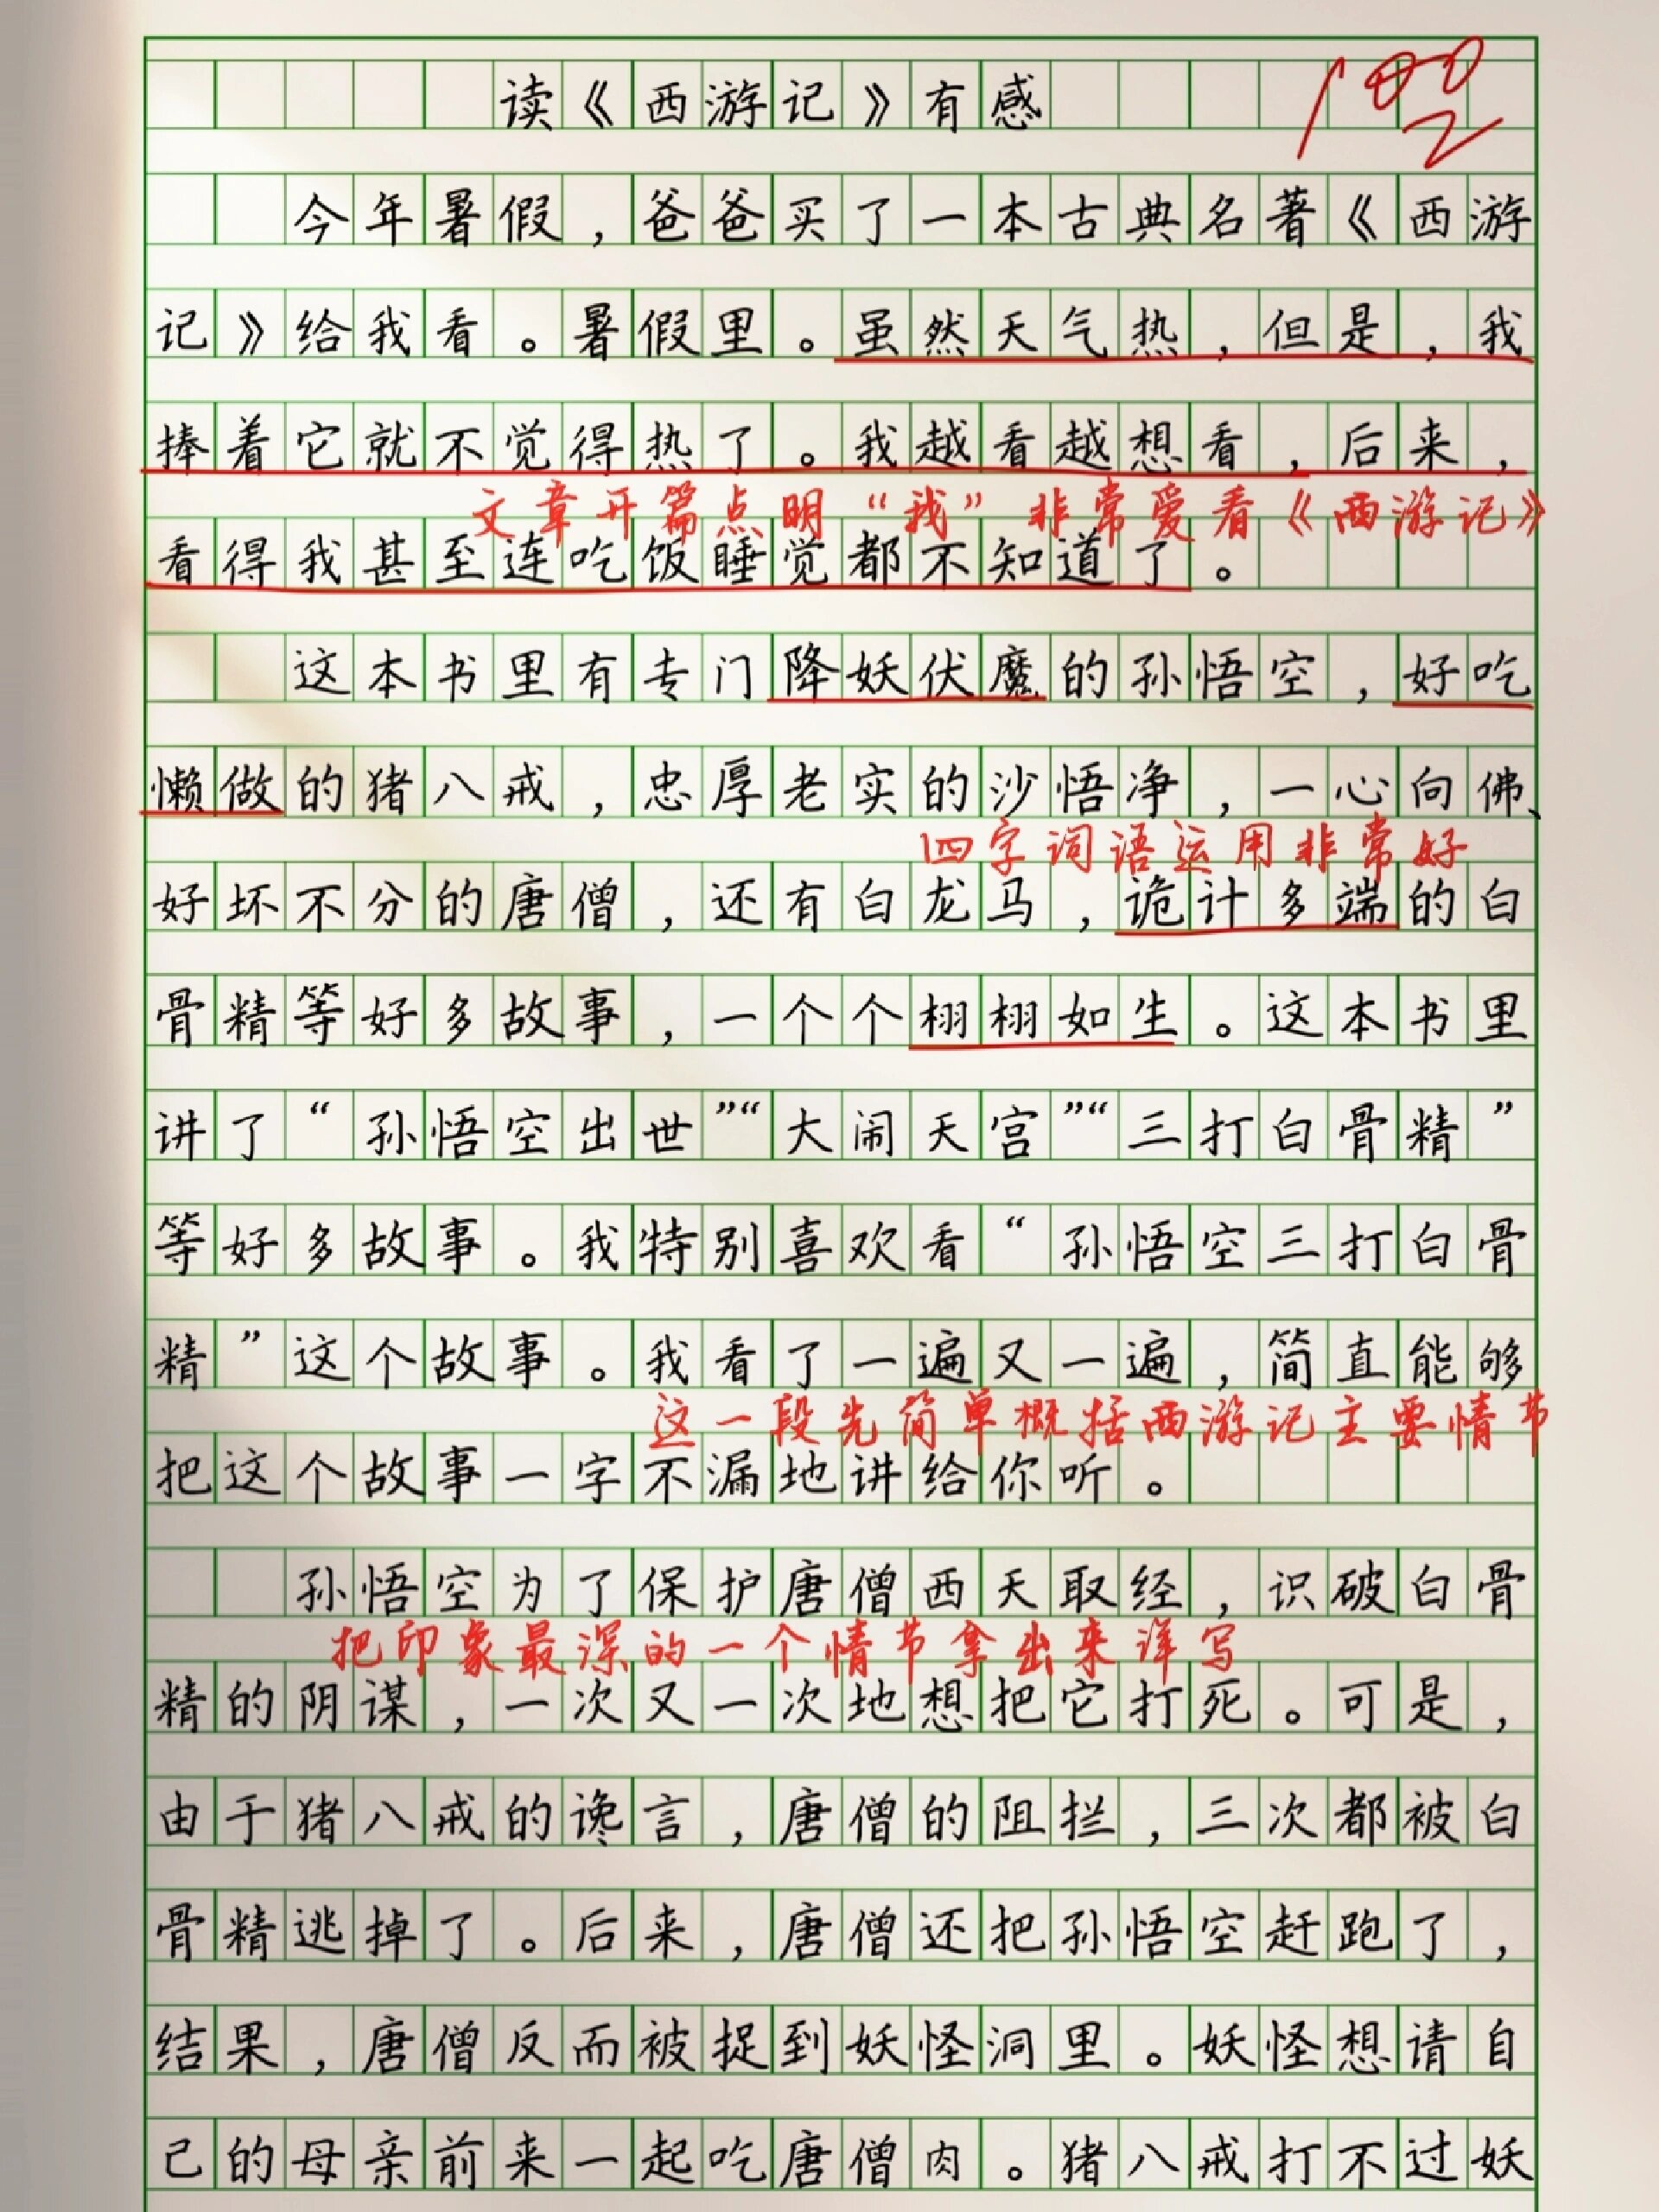 读《西游记》有感
100
今年暑假，爸爸买了一本古典名著《西游
记》给我看。暑假里。虽然天气热，但是，我
捧着它就不觉得热了。我越看越想看，后来，
文章开篇点明“我”非常爱看《西游记》
看得我甚至连吃饭睡觉都不知道了。
这本书里有专门降妖伏魔的孙悟空，好吃
懒做的猪八戒，忠厚老实的沙悟净，一心向佛、
四字词语运用非常好
好坏不分的唐僧，还有白龙马，诡计多端的白
骨精等好多故事，一个个栩栩如生。这本书里
讲了“孙悟空出世”“大闹天宫”“三打白骨精”
等好多故事。我特别喜欢看“孙悟空三打白骨
精”这个故事。我看了一遍又一遍，简直能够
这一段先简单概括西游记主要情节
把这个故事一字不漏地讲给你听。
孙悟空为了保护唐僧西天取经，识破白骨
把印象最深的一个情节拿出来详写
精的阴谋，一次又一次地想把它打死。可是，
由于猪八戒的谗言，唐僧的阻拦，三次都被白
骨精逃掉了。后来，唐僧还把孙悟空赶跑了，
结果，唐僧反而被捉到妖怪洞里。妖怪想请自
己的母亲前来一起吃唐僧肉。猪八戒打不过妖